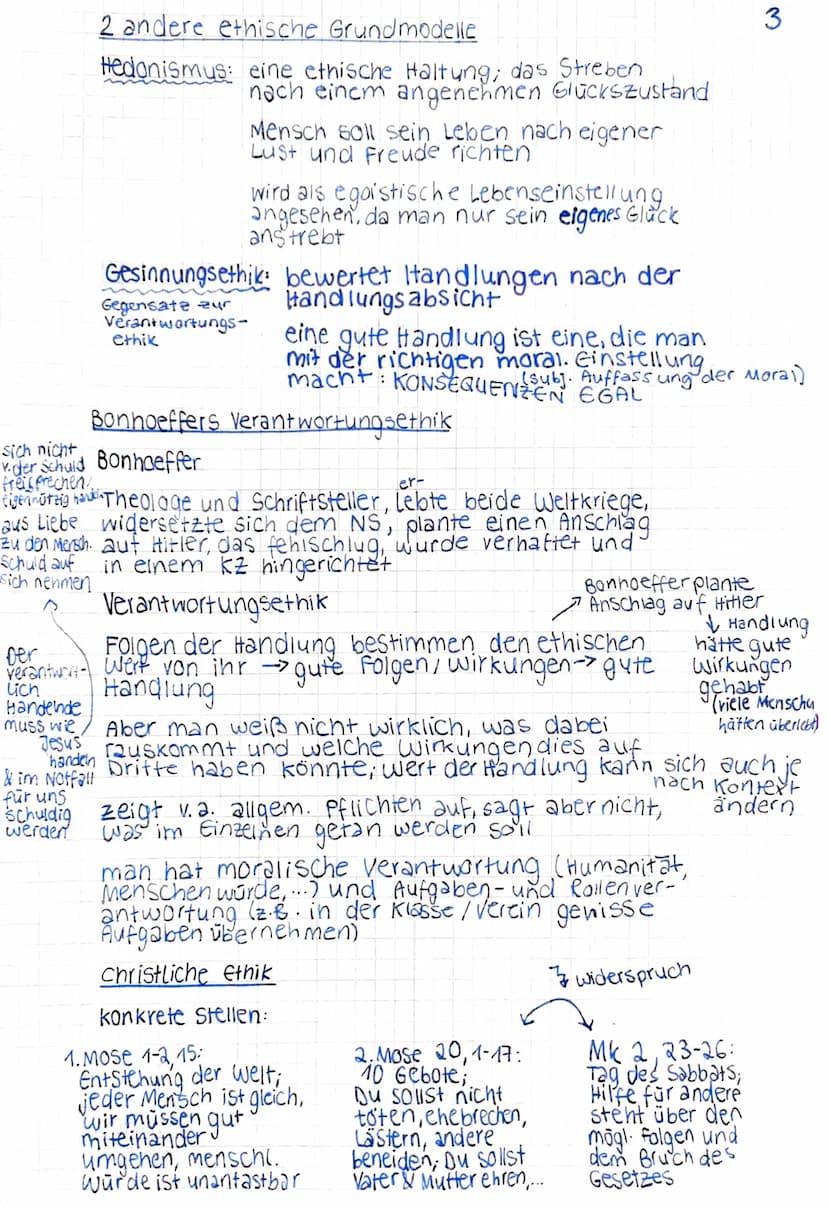 3
2 andere ethische Grundmodelle
Hedonismus: eine ethische Haltung; das Streben
nach einem angenehmen Glückszustand
Mensch soll sein Leben nach eigener
Lust und Freude richten
wird als egoistische Lebenseinstellung
angesehen, da man nur sein eigenes Glück
anstrebt
Gesinnungsethik: bewertet Handlungen nach der
Handlungsabsicht
Gegensatz zur
Verantwortungs-
ethik
eine gute Handlung ist eine, die man
mit der richtigen moral. Einstellung
macht: KONSEQUENZEN EGAL
(subj. Auffassung der Moral)
Bonhoeffers Verantwortungsethik
Bonhoeffer
er-
Theologe und Schriftsteller, lebte beide Weltkriege,
widersetzte sich dem NS, plante einen Anschlag
auf Hitler, das fehlschlug, wurde verhaftet und
in einem KZ hingerichtet
sich nicht
v. der Schuld
freisprechen,
eigennützig
aus Liebe
zu den Mensch.
Schuld auf
sich nehmen
Verantwortungsethik
Bonhoeffer plante
↗ Anschlag auf Hitler
↓ Handlung
hätte gute
Wirkungen
gehabt
(viele Menschen
hätten überlebt)
Folgen der Handlung bestimmen den ethischen
Wert von ihr → gute Folgen/Wirkungen → gute
Handlung
Der
verantwort-
lich
Handelnde
muss wie
Jesus
handeln
& im Notfall
für uns
schuldig
werden
Aber man weiß nicht wirklich, was dabei
rauskommt und welche Wirkungen dies auf
Dritte haben könnte; Wert der Handlung kann sich auch je
nach Kontext
ändern
zeigt v.a. allgem. Pflichten auf, sagt aber nicht,
was im Einzelnen getan werden soll
man hat moralische Verantwortung (Humanität,
Menschenwürde,...) und Aufgaben- und Rollenver-
antwortung (z.B. in der Klasse/Verein gewisse
Aufgaben übernehmen)
Christliche Ethik
Widerspruch
konkrete Stellen:
1. Mose 1-2,15:
Entstehung der Welt;
jeder Mensch ist gleich,
wir müssen gut
miteinander
umgehen, menschl.
Würde ist unantastbar
2. Mose 20,1-17:
10 Gebote;
Du sollst nicht
töten, ehebrechen,
lästern, andere
beneiden; Du sollst
Vater & Mutter ehren,...
Mk 2, 23-26:
Tag des Sabbats;
Hilfe für andere
steht über den
mögl. Folgen und
dem Bruch des
Gesetzes